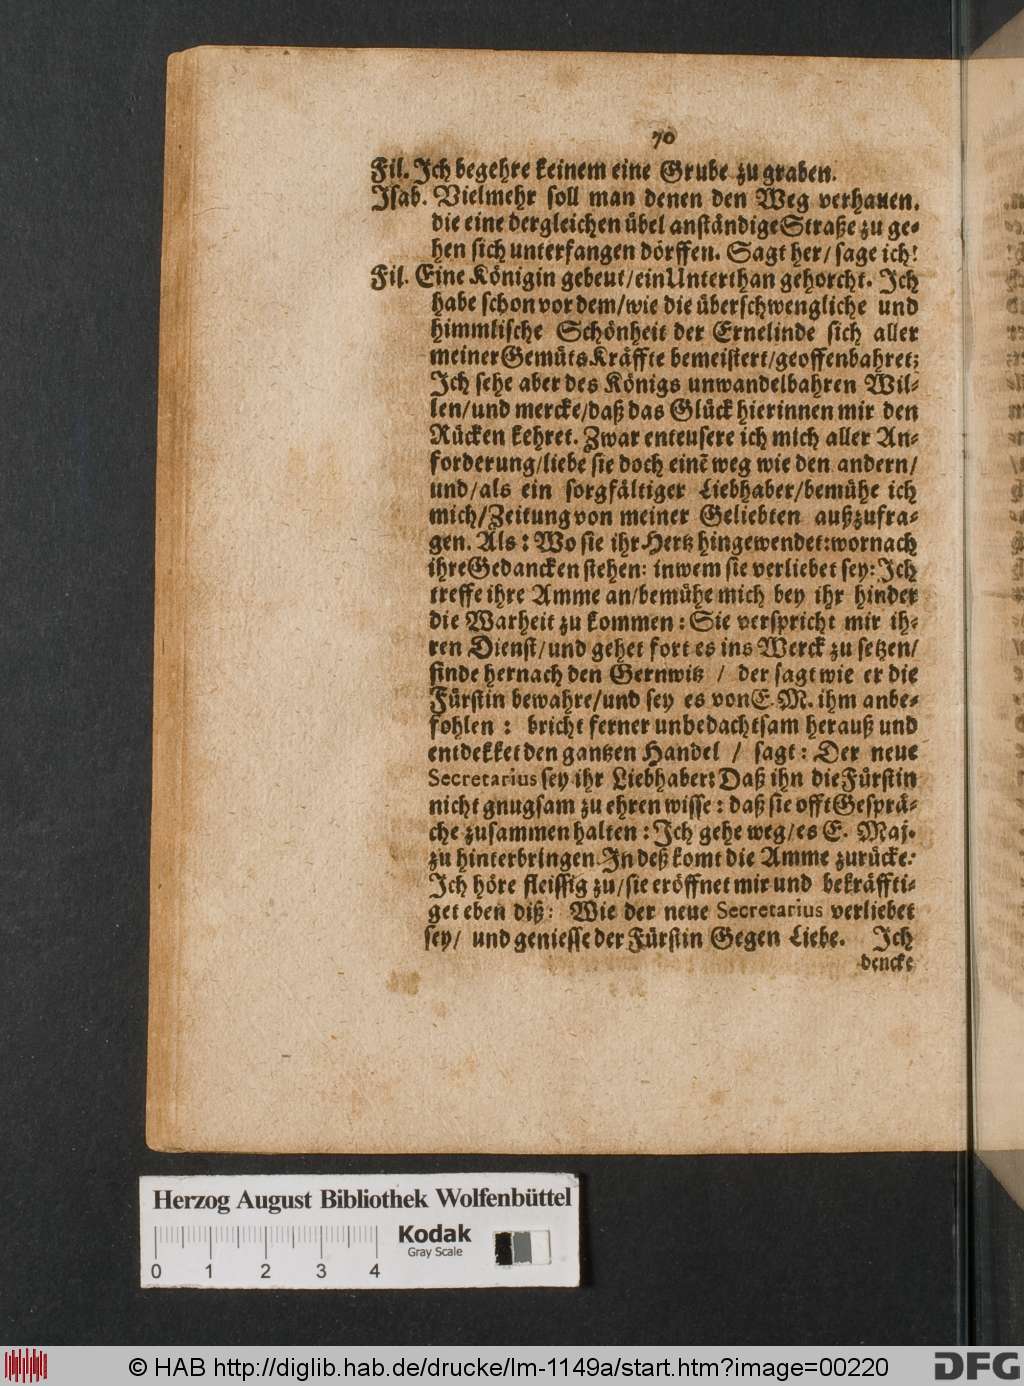 70
Fil. Ich begehre keinem eine Grube zu graben.
Isab. Vielmehr soll man denen den Weg verhauen,
die eine dergleichen übel anständige Straße zu ge-
hen sich unterfangen dörffen. Sagt her/ sage ich!
Fil. Eine Königin gebeut/ein Unterthan gehorcht. Ich
habe schon vor dem/wie die überschwengliche und
himmlische Schönheit der Ernelinde sich aller
meiner Gemüts Kräffte bemeistert/geoffenbahret;
Ich sehe aber des Königs unwandelbahren Wil-
len/und mercke/daß das Glück hierinnen mir den
Rücken kehret. Zwar enteusere ich mich aller An-
forderung/liebe sie doch einē weg wie den andern/
und/als ein sorgfältiger Liebhaber/bemühe ich
mich/Zeitung von meiner Geliebten außzufra-
gen. Als: Wo sie ihr Hertz hingewendet: wornach
ihre Gedancken stehen: in wem sie verliebet sey: Ich
treffe ihre Amme an/bemühe mich bey ihr hinder
die Warheit zu kommen: Sie verspricht mir ih-
ren Dienst/und gehet fort es ins Werck zu setzen/
finde hernach den Gernwitz / der sagt wie er die
Fürstin bewahre/und sey es von E. M. ihm anbe-
fohlen: bricht ferner unbedachtsam herauß und
entdekket den gantzen Handel / sagt: Der neue
Secretarius sey ihr Liebhaber: Daß ihn die Fürstin
nicht gnugsam zu ehren wisse: daß sie offt Gesprä-
che zusammen halten: Ich gehe weg/es E. Maj.
zu hinterbringen. In deß komt die Amme zurücke:
Ich höre fleissig zu/sie eröffnet mir und bekräffti-
get eben diß: Wie der neue Secretarius verliebet
sey/ und geniesse der Fürstin Gegen Liebe. Ich
dencke
Herzog August Bibliothek Wolfenbüttel
Kodak
Gray Scale
0 1 2 3 4
© HAB http://diglib.hab.de/drucke/lm-1149a/start.htm?image=00220
DFG